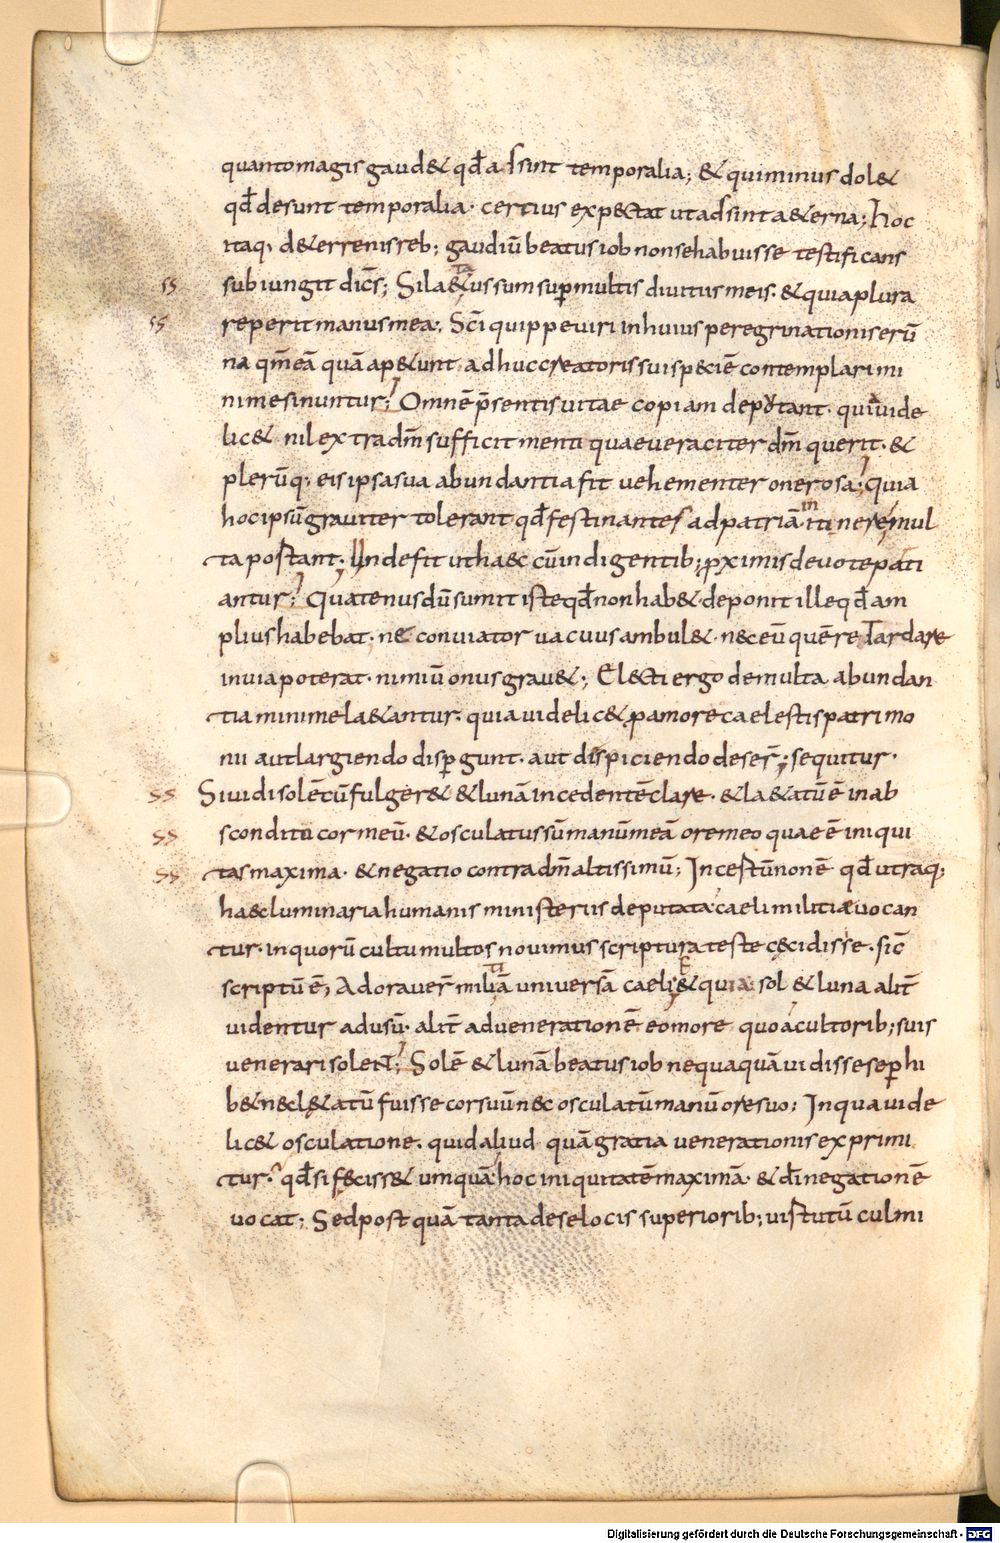 quantomagis gaud& qđ adsunt temporalia; & quiminus dol&
qđ desunt temporalia· certius exp&tat utadsint a&erna; hoc
itaq; d&errenis reb; gaudiū beatus iob nonsehabuisse testificans
ss subiungit dicēs; Sila&tatus sum sup multis diuitiis meis· & quiaplura
ss reperit manus mea; Sc̄i quippe uiri inhuius peregrinationis erū
na qm̄ eā quā ap&unt adhuc creatoris sui speciē contemplari mi
nime sinuntur; Omnē p̄sentis uitae copiam deportant· qui uide
lic& nil extra dm̄ sufficit menti quae ueraciter dm̄ querit· &
plerūq; eis ipsa sua abundantia fit uehementer onerosa· quia
hoc ipsū grauiter tolerant qđ festinantes ad patriā in itinere mul
ta postant· Unde fit ut haec cū indigentib; pximis deuote pati
antur; Quatenus dū sumit iste qđ non hab& deponit ille qđ am
plius habebat· ne conuiator uacuus ambul& nec eū quē retardare
in uia poterat· nimiū onus grau&; Electi ergo de multa abundan
tia minime la&antur· quia uidelic& p amore caelestis patrimo
nii aut largiendo dispergunt· aut dispiciendo deser̄; sequitur·
ss Si uidi solē cū fulger& & lunā incedentē clare· & la&atū ē in ab
ss scondito cor meū· & osculatus sū manū meā ore meo quae ē iniqui
ss tas maxima· & negatio contra dm̄ altissimū; Incestū non ē qđ utraq;
haec luminaria humanis ministeriis deputata caeli militiae uocan
tur· in quorū cultu multos nouimus scriptura teste cecidisse· sic̄
scriptū ē; Adorauer̄ militiā uniuersā caeli; & quia sol & luna alit̄
uidentur ad usū· alit̄ ad uenerationē eo more quo a cultorib; suis
uenerari solent; Solē & lunā beatus iob nequaquā uidisse se phi
b& nec l&atū fuisse cor suū nec osculatū manū ore suo; In qua uide
lic& osculatione· quid aliud quā gratia uenerationis exprimi
tur· qđ si feciss& umquā hoc iniquitatē maximā· & dī negationē
uocat; Sed postquā tanta de se locis superiorib; uirtutū culmi
Digitalisierung gefördert durch die Deutsche Forschungsgemeinschaft - DFG